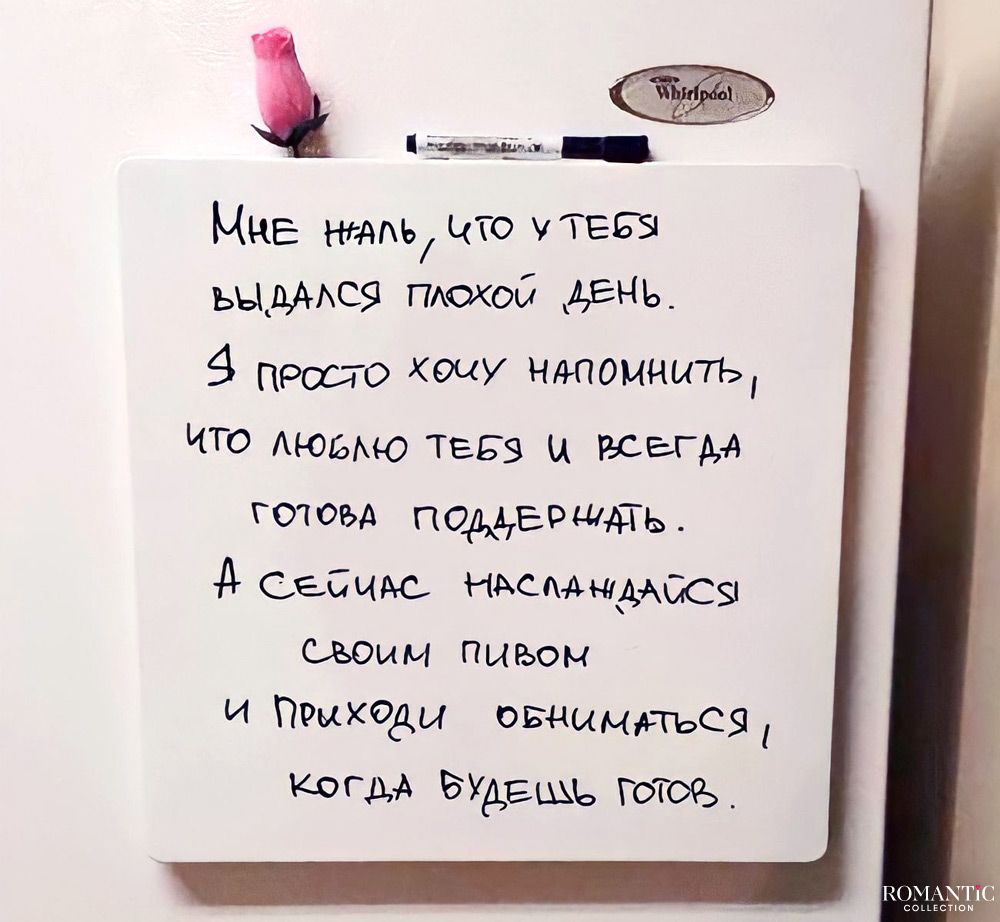 Whirlpool
Мне жаль, что у тебя
выдался плохой день.
Я просто хочу напомнить,
что люблю тебя и всегда
готова поддержать.
А сейчас наслаждайся
своим пивом
и приходи обниматься,
когда будешь готов.
ROMANTiC
COLLECTION